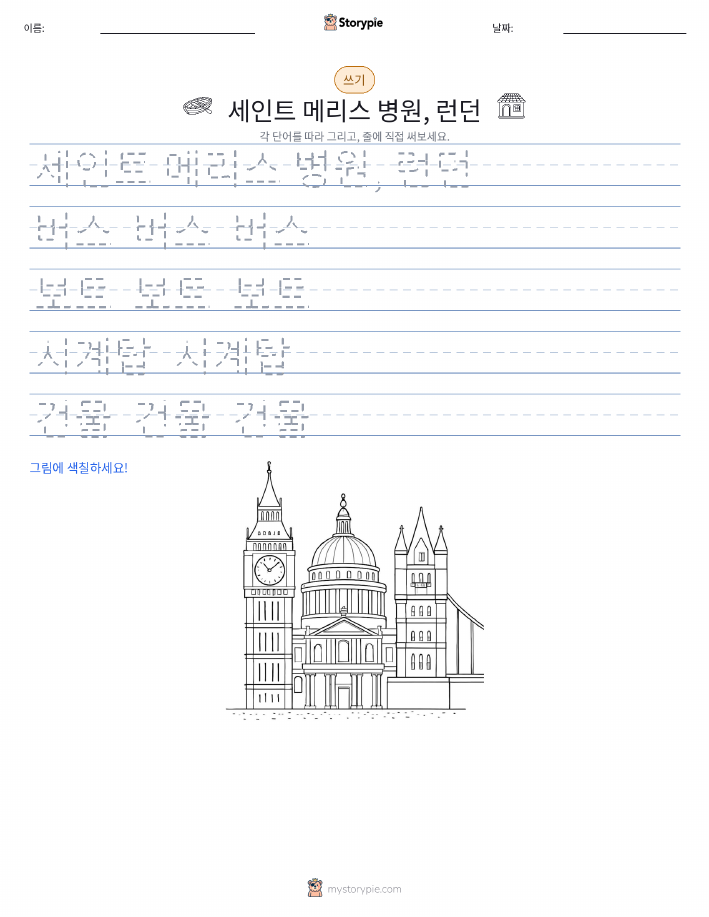 이름:
Storypie
날짜:
쓰기
세인트 메리스 병원, 런던
각 단어를 따라 그리고, 줄에 직접 써보세요.
세인트 메리스 병원, 런던
버스 버스 버스
보트 보트 보트
시계탑 시계탑
건물 건물 건물
그림에 색칠하세요!
mystorypie.com